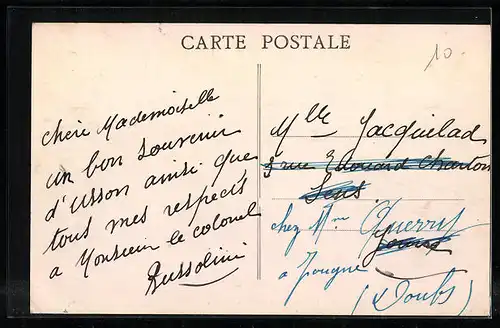 CARTE POSTALE
10.
chère Mademoiselle
un bon souvenir
d'Usson ainsi que
tous mes respects
a Monsieur le colonel
Russolini
Mlle Jacquelad
3 rue Edouard Charton
Sens
chez Mme Querry
a Jougne
(Doubs)